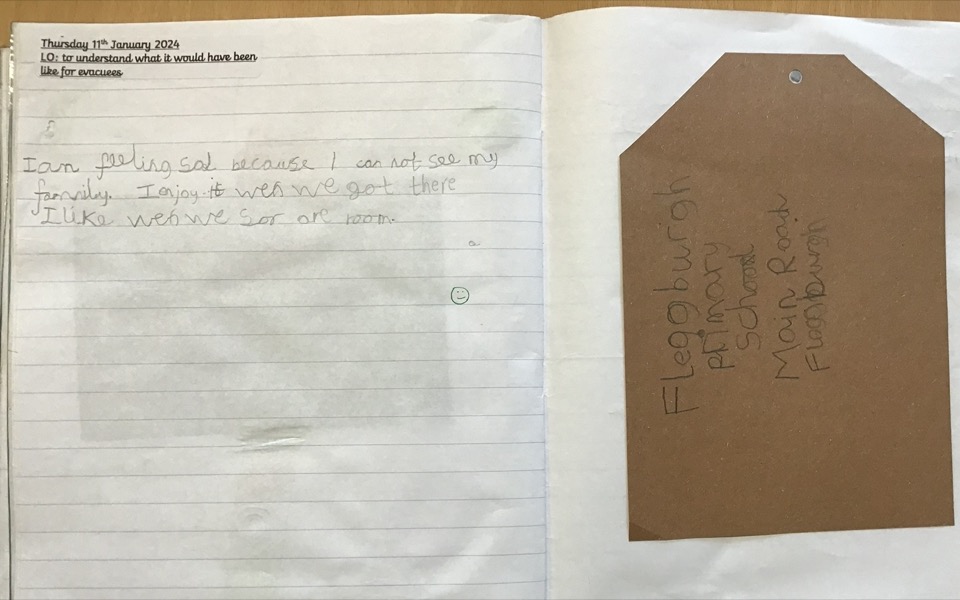 Thursday 11th January 2024
LO: to understand what it would have been
like for evacuees
I am feeling sad because I can not see my
family. I enjoy it weh we got there
I like weh we sor are room.
Fleggburgh
Primary
School
Main Road
Fleggburgh